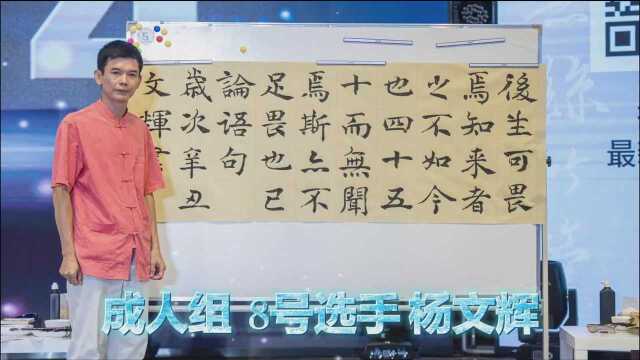 後生可畏
焉知来者
之不如今
也四十五
十而無聞
焉斯亦不
足畏也已
論語句
歲次辛丑
文輝
成人组 8号选手 杨文辉